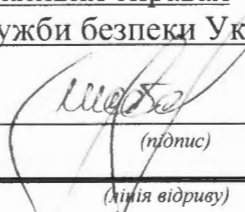 ужби безпеки Ук
(підпис)
(лінія відриву)